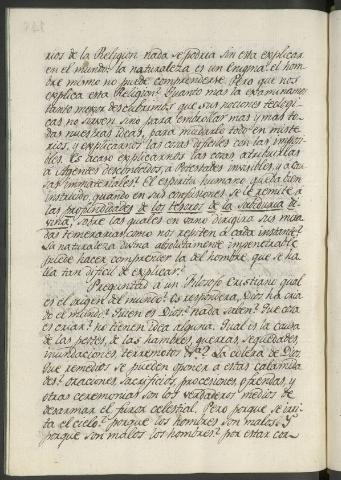 rios de la Religion nada se podria sin esta explicar
en el mundo: la naturaleza es un Enigma: el hom
bre mismo no puede comprenderse. Pero que nos
explica esta Religion? Quanto mas la examinamos
tanto mejor descubrimos que sus nociones teologi
cas no sirven sino para embrollar mas y mas to
das nuestras ideas, para mudarlo todo en miste
rios, y explicarnos las cosas dificiles con las imposi
bles. Es acaso explicarnos las cosas, atribuirlas
à Agentes desconocidos, a Potestades invisibles, y a cau
sas immateriales? El espiritu humano queda bien
instruido, quando en sus confusiones se le remite à
las profundidades de los tesoros de la Sabiduria di
vina, sobre las quales en vano dirigira sus mira
das temerarias como nos repiten à cada instante?
La naturaleza divina absolutamente impenetrable
puede hacer comprender la del hombre que se ha
lla tan dificil de explicar?
Preguntad a un Filosofo Cristiano qual
es el origen del mundo: os respondera, Dios ha cria
do el Mundo: Quien es Dios? nada saben: Que cosa
es criar? no tienen idea alguna. Qual es la causa
de las pestes, de las hambres, guerras, sequedades,
inundaciones, terremotos &a? La colera de Dios
Que remedios se pueden oponer a estas calamida
des? oraciones, sacrificios, procesiones, ofrendas, y
otras ceremonias son los verdaderos medios de
desarmar el furor celestial. Pero porque se irri
ta el cielo? porque los hombres son malos. Y
porque son malos los hombres? por estar cor-